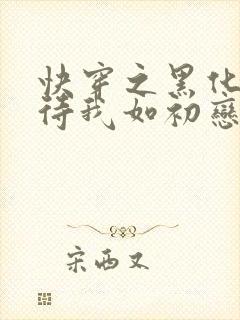 快穿之黑化
待我如初戀
宋西又